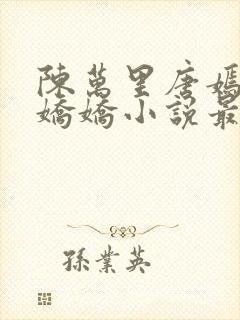 陳萬里唐嫣
嬌嬌小說最
孫業英